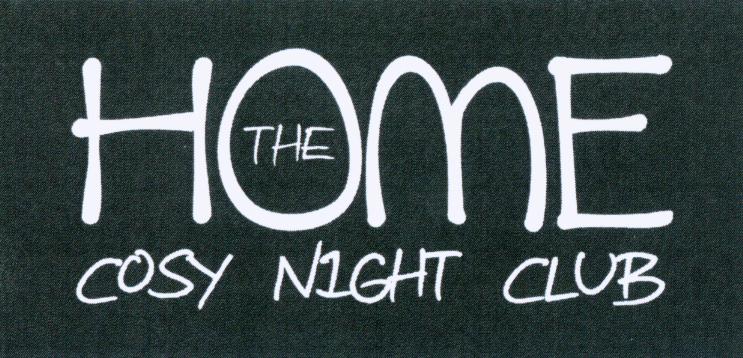 THE
HOME
COSY NIGHT CLUB